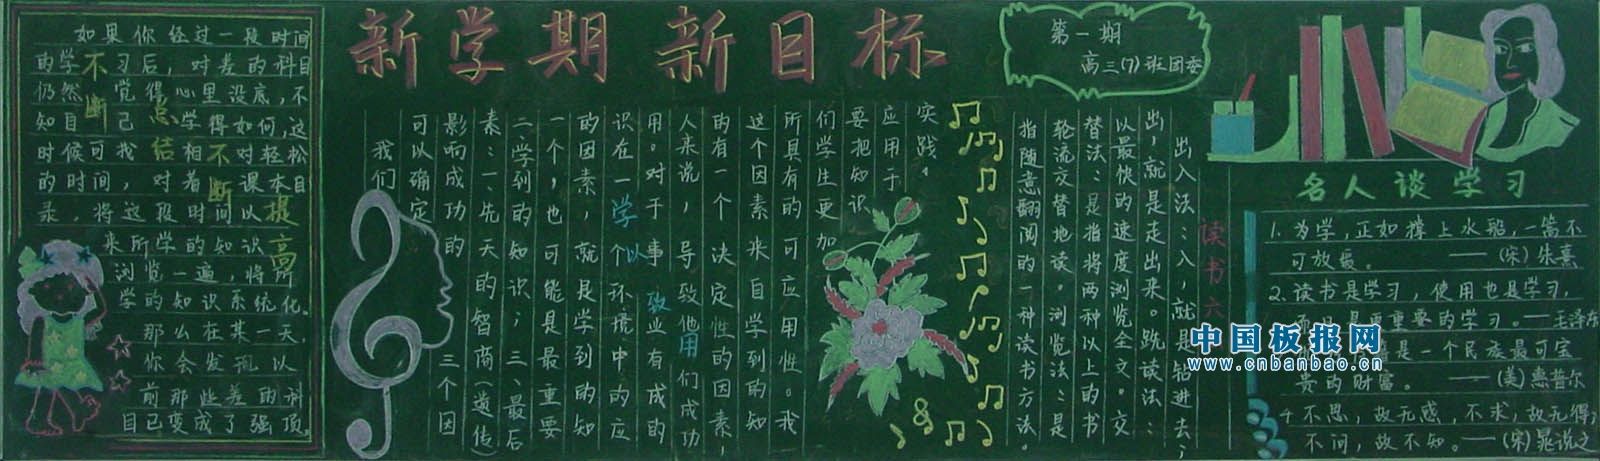 新学期 新目标
第一期
高三(7)班团委
如果你经过一段时间
的学习后，对差的科目
仍然觉得心里没底，不
知自己学得如何，这
时候可找相对轻松
的时间，对着课本目
录，将这段时间以
来所学的知识
浏览一遍，将所
学的知识系统化。
那么在某一天，
你会发现以
前那些差的科
目已变成了强项。
不断总结不断提高
我们
可以确定
影响成功的三个因
素：一、先天的智商(遗传)
二、学到的知识；三、最后
一个，也可能是最重要
的因素，就是学到的知
识在一个环境中的应
用。对于事业有成的
人来说，导致他们成功
的有一个决定性的因素，
这个因素来自学到的知
所具有的可应用性。我
们学生更加
要把知识
应用于
实践。
学以致用
读书六
出入法：入，就是钻进去；
出，就是走出来。跳读法：
以最快的速度浏览全文。交
替法：是指将两种以上的书
轮流交替地读。浏览法：是
指随意翻阅的一种读书方法。
名人谈学习
1.为学，正如撑上水船，一篙不
可放缓。——(宋)朱熹
2.读书是学习，使用也是学习，
是更重要的学习。—毛泽东
是一个民族最可宝
贵的财富。——(美)惠普尔
4.不思，故无惑，不求，故无得；
不问，故不知。——(宋)晁说之
中国板报网
www.cnbanbao.cn